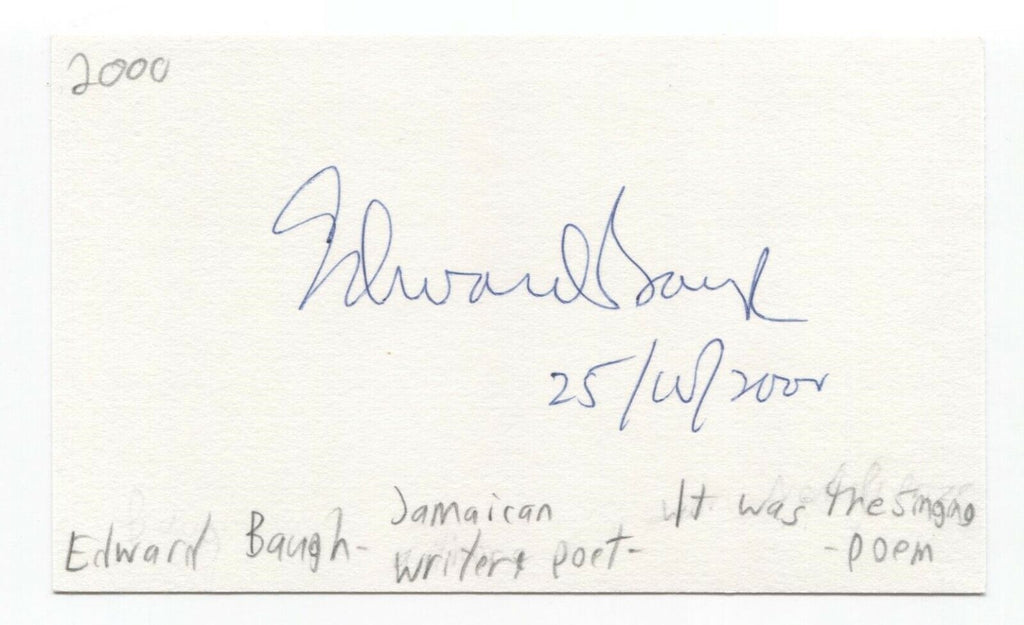 2000
Edward Baugh
25/10/2000
Edward Baugh- Jamaican writer & poet- It was the singing -poem